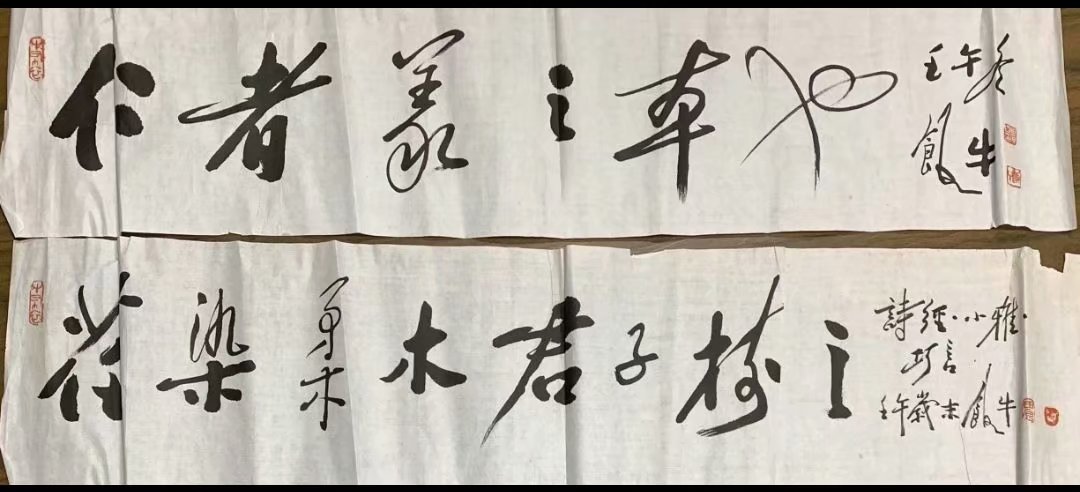 仁者義之本也
壬午冬
飯牛
荏染柔木君子樹之
詩經·小雅·
巧言
壬午歲末飯牛